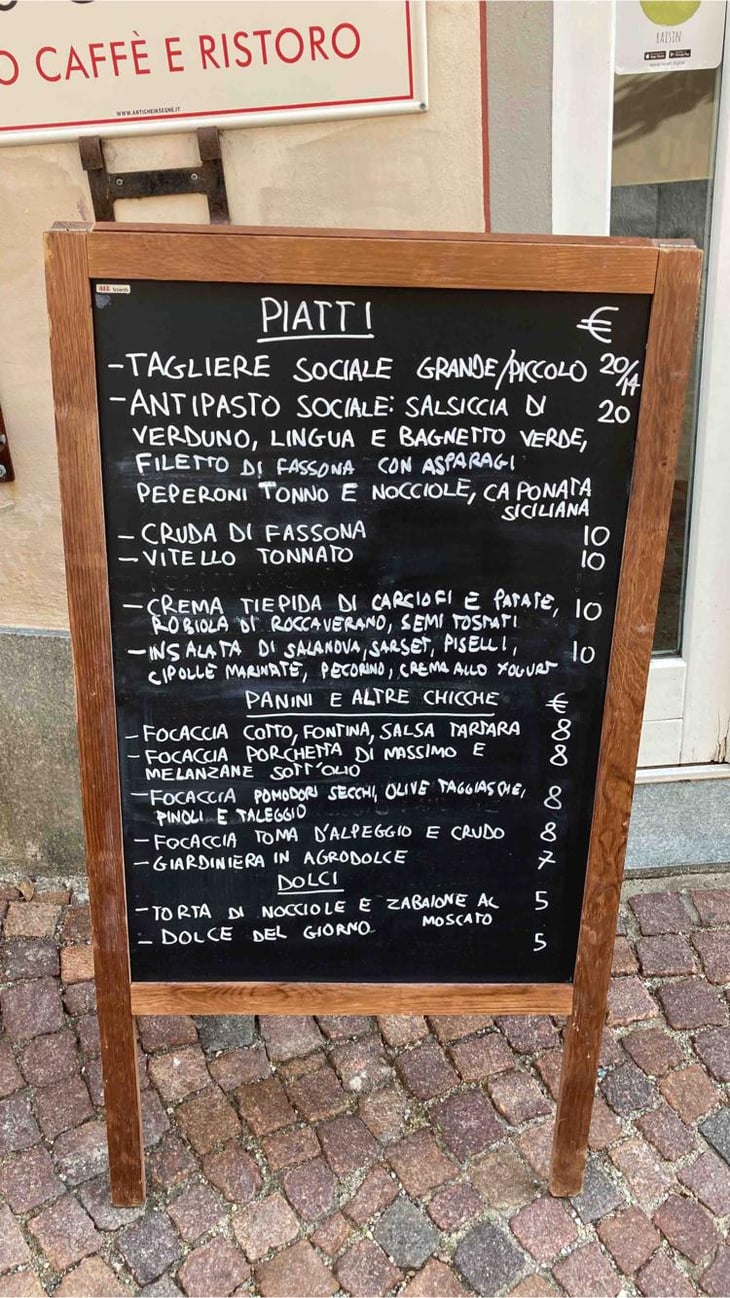 O CAFFÈ E RISTORO
WWW.ANTICHEINSEGNE.IT
RAISIN
PIATTI €
-TAGLIERE SOCIALE GRANDE/PICCOLO 20/14
-ANTIPASTO SOCIALE: SALSICCIA DI 20
VERDUNO, LINGUA E BAGNETTO VERDE,
FILETTO DI FASSONA CON ASPARAGI
PEPERONI TONNO E NOCCIOLE, CAPONATA
SICILIANA
- CRUDA DI FASSONA 10
- VITELLO TONNATO 10
- CREMA TIEPIDA DI CARCIOFI E PATATE, 10
ROBIOLA DI ROCCAVERANO, SEMI TOSTATI
-INSALATA DI SALANOVA, SARSET, PISELLI, 10
CIPOLLE MARINATE, PECORINO, CREMA ALLO YOGURT
PANINI E ALTRE CHICCHE €
- FOCACCIA COTTO, FONTINA, SALSA TARTARA 8
- FOCACCIA PORCHETTA DI MASSIMO E 8
MELANZANE SOTT'OLIO
- FOCACCIA POMODORI SECCHI, OLIVE TAGGIASCHE, 8
PINOLI E TALEGGIO
- FOCACCIA TOMA D'ALPEGGIO E CRUDO 8
- GIARDINIERA IN AGRODOLCE 7
DOLCI
- TORTA DI NOCCIOLE E ZABAIONE AL 5
MOSCATO
- DOLCE DEL GIORNO 5